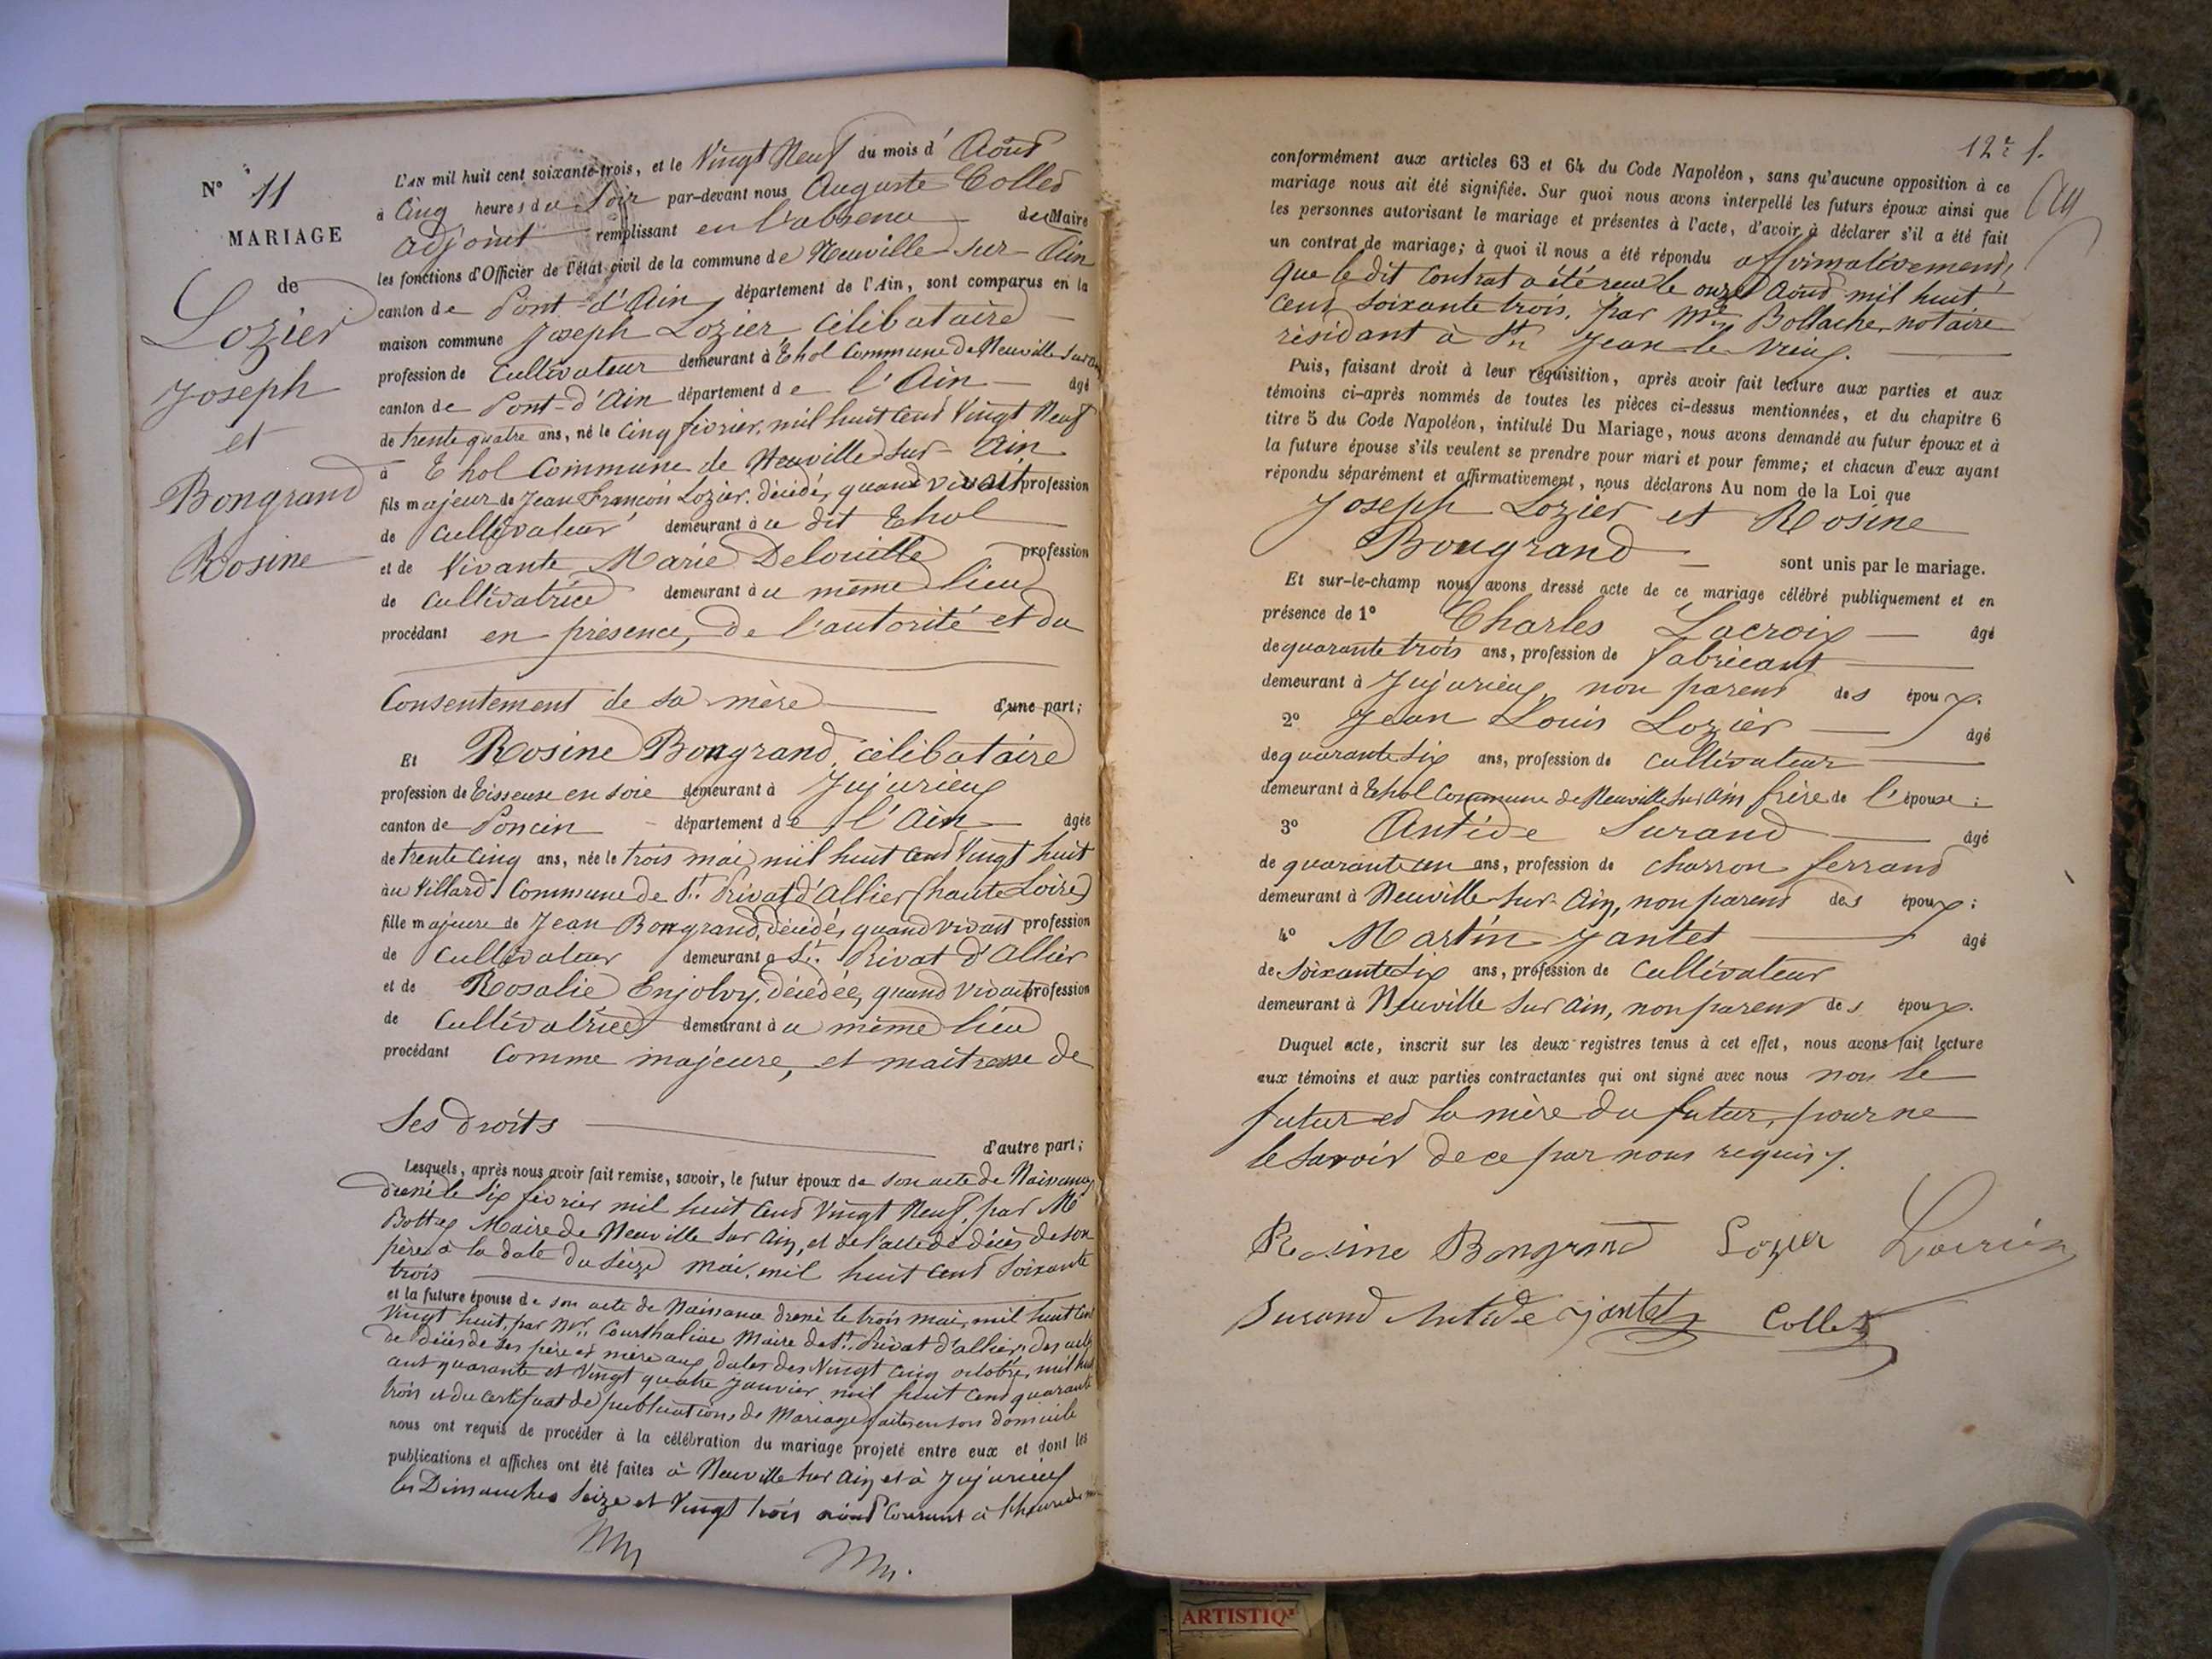 N° 11
MARIAGE
de
Lozier
Joseph
et
Bongrand
Rosine
L'AN mil huit cent soixante-trois, et le Vingt Neuf du mois d' Août
à Cinq heures du Soir par-devant nous Auguste Collet
adjoint remplissant en l'absence du Maire
les fonctions d'Officier de l'état civil de la commune de Neuville sur Ain
canton de Pont-d'Ain, département de l'Ain, sont comparus en la
maison commune Joseph Lozier, célibataire
profession de Cultivateur demeurant à Thol Commune de Neuville sur Ain
canton de Pont-d'Ain département de l'Ain âgé
de trente quatre ans, né le Cinq février, mil huit cent Vingt Neuf
à Thol Commune de Neuville sur Ain
fils majeur de Jean François Lozier, décédé, quand vivait profession
de Cultivateur demeurant à ce dit Thol
et de Vivante Marie Delouille profession
de Cultivatrice demeurant à ce même lieu
procédant en présence, de l'autorité et du
Consentement de sa mère d'une part;
Et Rosine Bongrand, célibataire
profession de Tisseuse en soie demeurant à Jujurieux
canton de Poncin département de l'Ain âgée
de trente Cinq ans, née le trois mai, mil huit cent Vingt huit
au Villard Commune de St. Privat d'Allier (haute Loire)
fille majeure de Jean Bongrand, décédé, quand vivait profession
de Cultivateur demeurant à St. Privat d'Allier
et de Rosalie Enjolvy, décédée, quand vivait profession
de Cultivatrice demeurant à ce même lieu
procédant Comme majeure, et maitresse de
Ses droits
d'autre part;
Lesquels, après nous avoir fait remise, savoir, le futur époux de son acte de Naissance
dressé le Six février mil huit cent Vingt Neuf, par Mr
Maire de Neuville sur Ain, et de l'acte de décès de son
père à la date du Seize mai, mil huit cent Soixante
trois
et la future épouse de son acte de Naissance dressé le trois mai, mil huit cent
Vingt huit, par Mr. Courthaliac Maire de St. Privat d'allier, des actes
de décès de ses père et mère aux dates des Vingt cinq octobre, mil huit
cent quarante et Vingt quatre janvier mil huit cent quarante
trois et du certificat de publications de Mariage faites en son domicile
nous ont requis de procéder à la célébration du mariage projeté entre eux et dont les
publications et affiches ont été faites à Neuville sur Ain et à Jujurieux
les Dimanches Seize et Vingt trois août Courant à l'heure de
12e f.
conformément aux articles 63 et 64 du Code Napoléon, sans qu'aucune opposition à ce
mariage nous ait été signifiée. Sur quoi nous avons interpellé les futurs époux ainsi que
les personnes autorisant le mariage et présentes à l'acte, d'avoir à déclarer s'il a été fait
un contrat de mariage; à quoi il nous a été répondu affirmativement,
que le dit Contrat a été reçu le onze Août mil huit
cent Soixante trois, par Me Bollache, notaire
résidant à St. Jean le Vieux.
Puis, faisant droit à leur réquisition, après avoir fait lecture aux parties et aux
témoins ci-après nommés de toutes les pièces ci-dessus mentionnées, et du chapitre 6
titre 5 du Code Napoléon, intitulé Du Mariage, nous avons demandé au futur époux et à
la future épouse s'ils veulent se prendre pour mari et pour femme; et chacun d'eux ayant
répondu séparément et affirmativement, nous déclarons Au nom de la Loi que
Joseph Lozier et Rosine
Bongrand sont unis par le mariage.
Et sur-le-champ nous avons dressé acte de ce mariage célébré publiquement et en
présence de 1° Charles Lacroix âgé
de quarante trois ans, profession de fabricant
demeurant à Jujurieux, non parent des époux.
2° Jean Louis Lozier âgé
de quarante Six ans, profession de Cultivateur
demeurant à Thol Commune de Neuville sur Ain frère de l'épouse;
3° Antide Surand âgé
de quarante un ans, profession de charron ferrand
demeurant à Neuville sur Ain, non parent des époux;
4° Martin Jantet âgé
de Soixante Six ans, profession de Cultivateur
demeurant à Neuville sur Ain, non parent des époux.
Duquel acte, inscrit sur les deux registres tenus à cet effet, nous avons fait lecture
aux témoins et aux parties contractantes qui ont signé avec nous non le
futur et la mère du futur, pour ne
le Savoir de ce par nous requis.
Rosine Bongrand Lozier Lacroix
Surand Antide Jantet Collet
ARTISTIQ